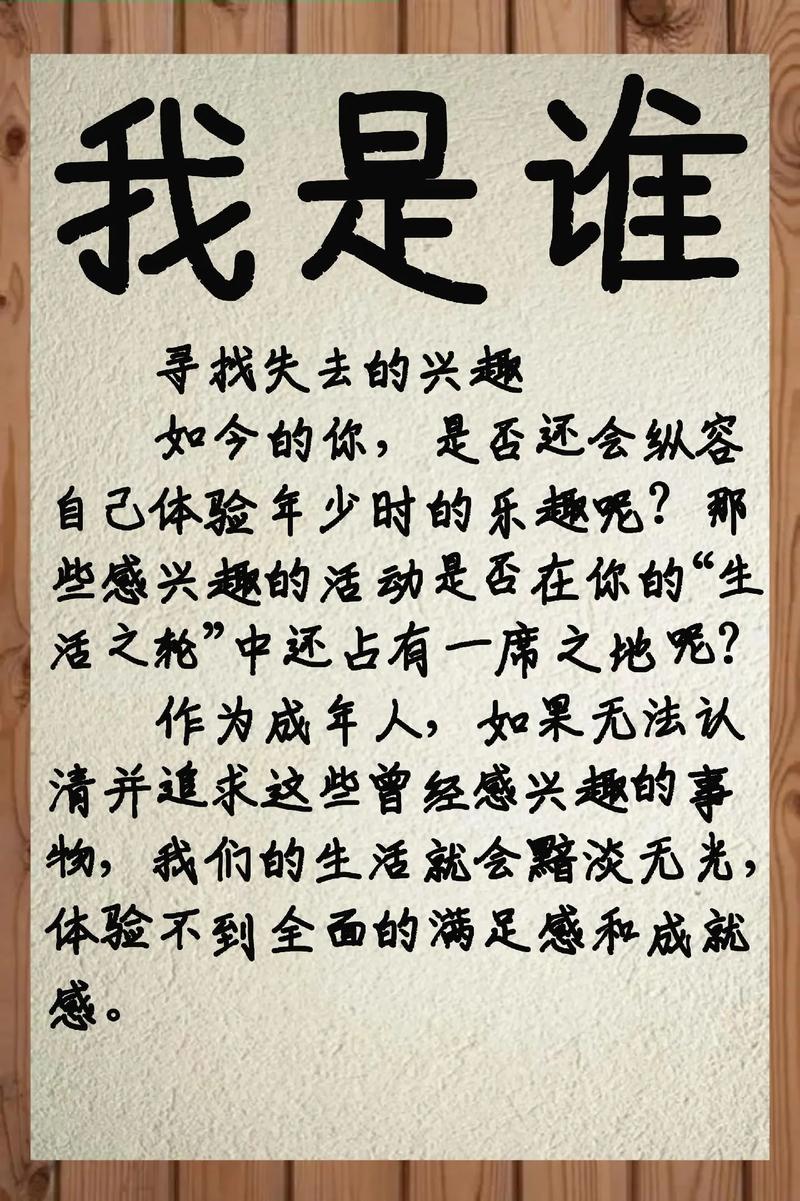 我是谁
寻找失去的兴趣
如今的你，是否还会纵容
自己体验年少时的乐趣呢？那
些感兴趣的活动是否在你的“生
活之轮”中还占有一席之地呢？
作为成年人，如果无法认
清并追求这些曾经感兴趣的事
物，我们的生活就会黯淡无光，
体验不到全面的满足感和成就
感。